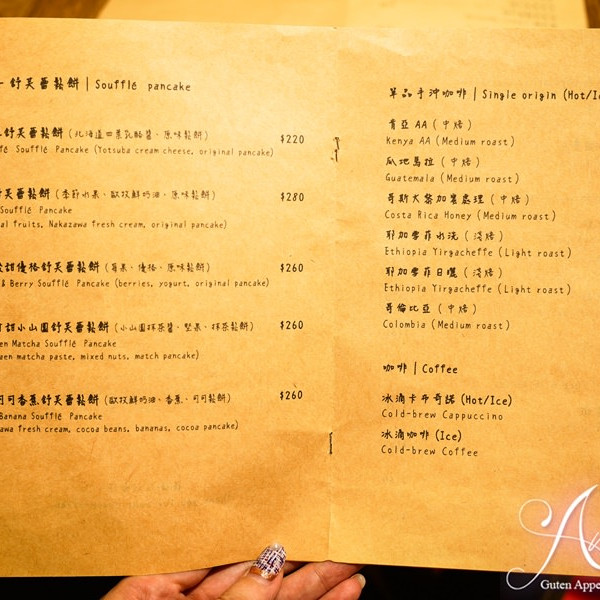 舒芙蕾鬆餅 | Soufflé pancake
舒芙蕾鬆餅 (北海道四葉乳酪醬、原味鬆餅) $220
Soufflé Pancake (Yotsuba cream cheese, original pancake)
芙蕾鬆餅 (季節水果、歐牧鮮奶油、原味鬆餅) $280
Soufflé Pancake
fruits, Nakazawa fresh cream, original pancake)
甜優格舒芙蕾鬆餅 (莓果、優格、原味鬆餅) $260
& Berry Soufflé Pancake (berries, yogurt, original pancake)
甜小山園舒芙蕾鬆餅 (小山園抹茶醬、堅果、抹茶鬆餅) $260
Matcha Soufflé Pancake
matcha paste, mixed nuts, match pancake)
可香蕉舒芙蕾鬆餅 (歐牧鮮奶油、香蕉、可可鬆餅) $260
Banana Soufflé Pancake
fresh cream, cocoa beans, bananas, cocoa pancake)
單品手沖咖啡 | Single origin (Hot/
肯亞 AA (中焙)
Kenya AA (Medium roast)
瓜地馬拉 (中焙)
Guatemala (Medium roast)
哥斯大黎加蜜處理 (中焙)
Costa Rica Honey (Medium roast)
耶加雪菲水洗 (淺焙)
Ethiopia Yirgacheffe (Light roast)
耶加雪菲日曬 (淺焙)
Ethiopia Yirgacheffe (Light roast)
哥倫比亞 (中焙)
Colombia (Medium roast)
咖啡 | Coffee
冰滴卡布奇諾 (Hot/Ice)
Cold-brew Cappuccino
冰滴咖啡 (Ice)
Cold-brew Coffee
Guten Appe